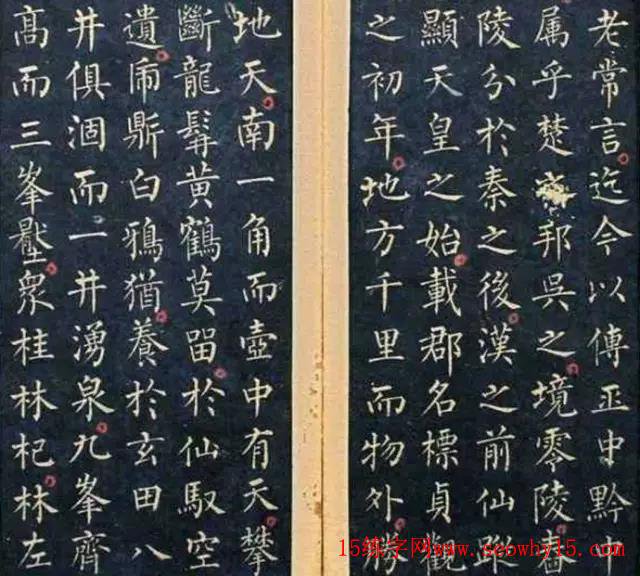 老常言迄今以傳中黔中
属乎楚邦吳之境零陵舂
陵分於秦之後漢之前仙蹤
顯天皇之始載郡名標貞觀
之初年地方千里而物外勝
地天南一角而壺中有天攀
斷龍髯黃鶴莫留於仙馭空
遺鼎白鴉猶養於玄田八
井俱涸而一井湧泉九峯齊
髙而三峯壓衆桂林杞林左
15练字网www.seowhy15.com